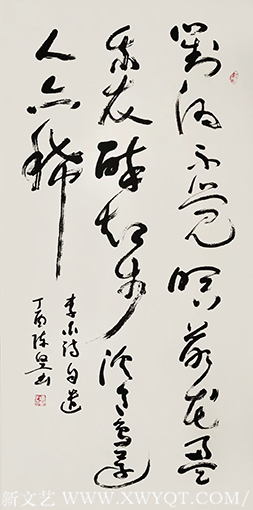 對酒不覺暝落花盈
我衣醉起步溪月鳥還
人亦稀
李白詩自遣
丁酉陈书
新文艺/WWW.XWYQT.COM/